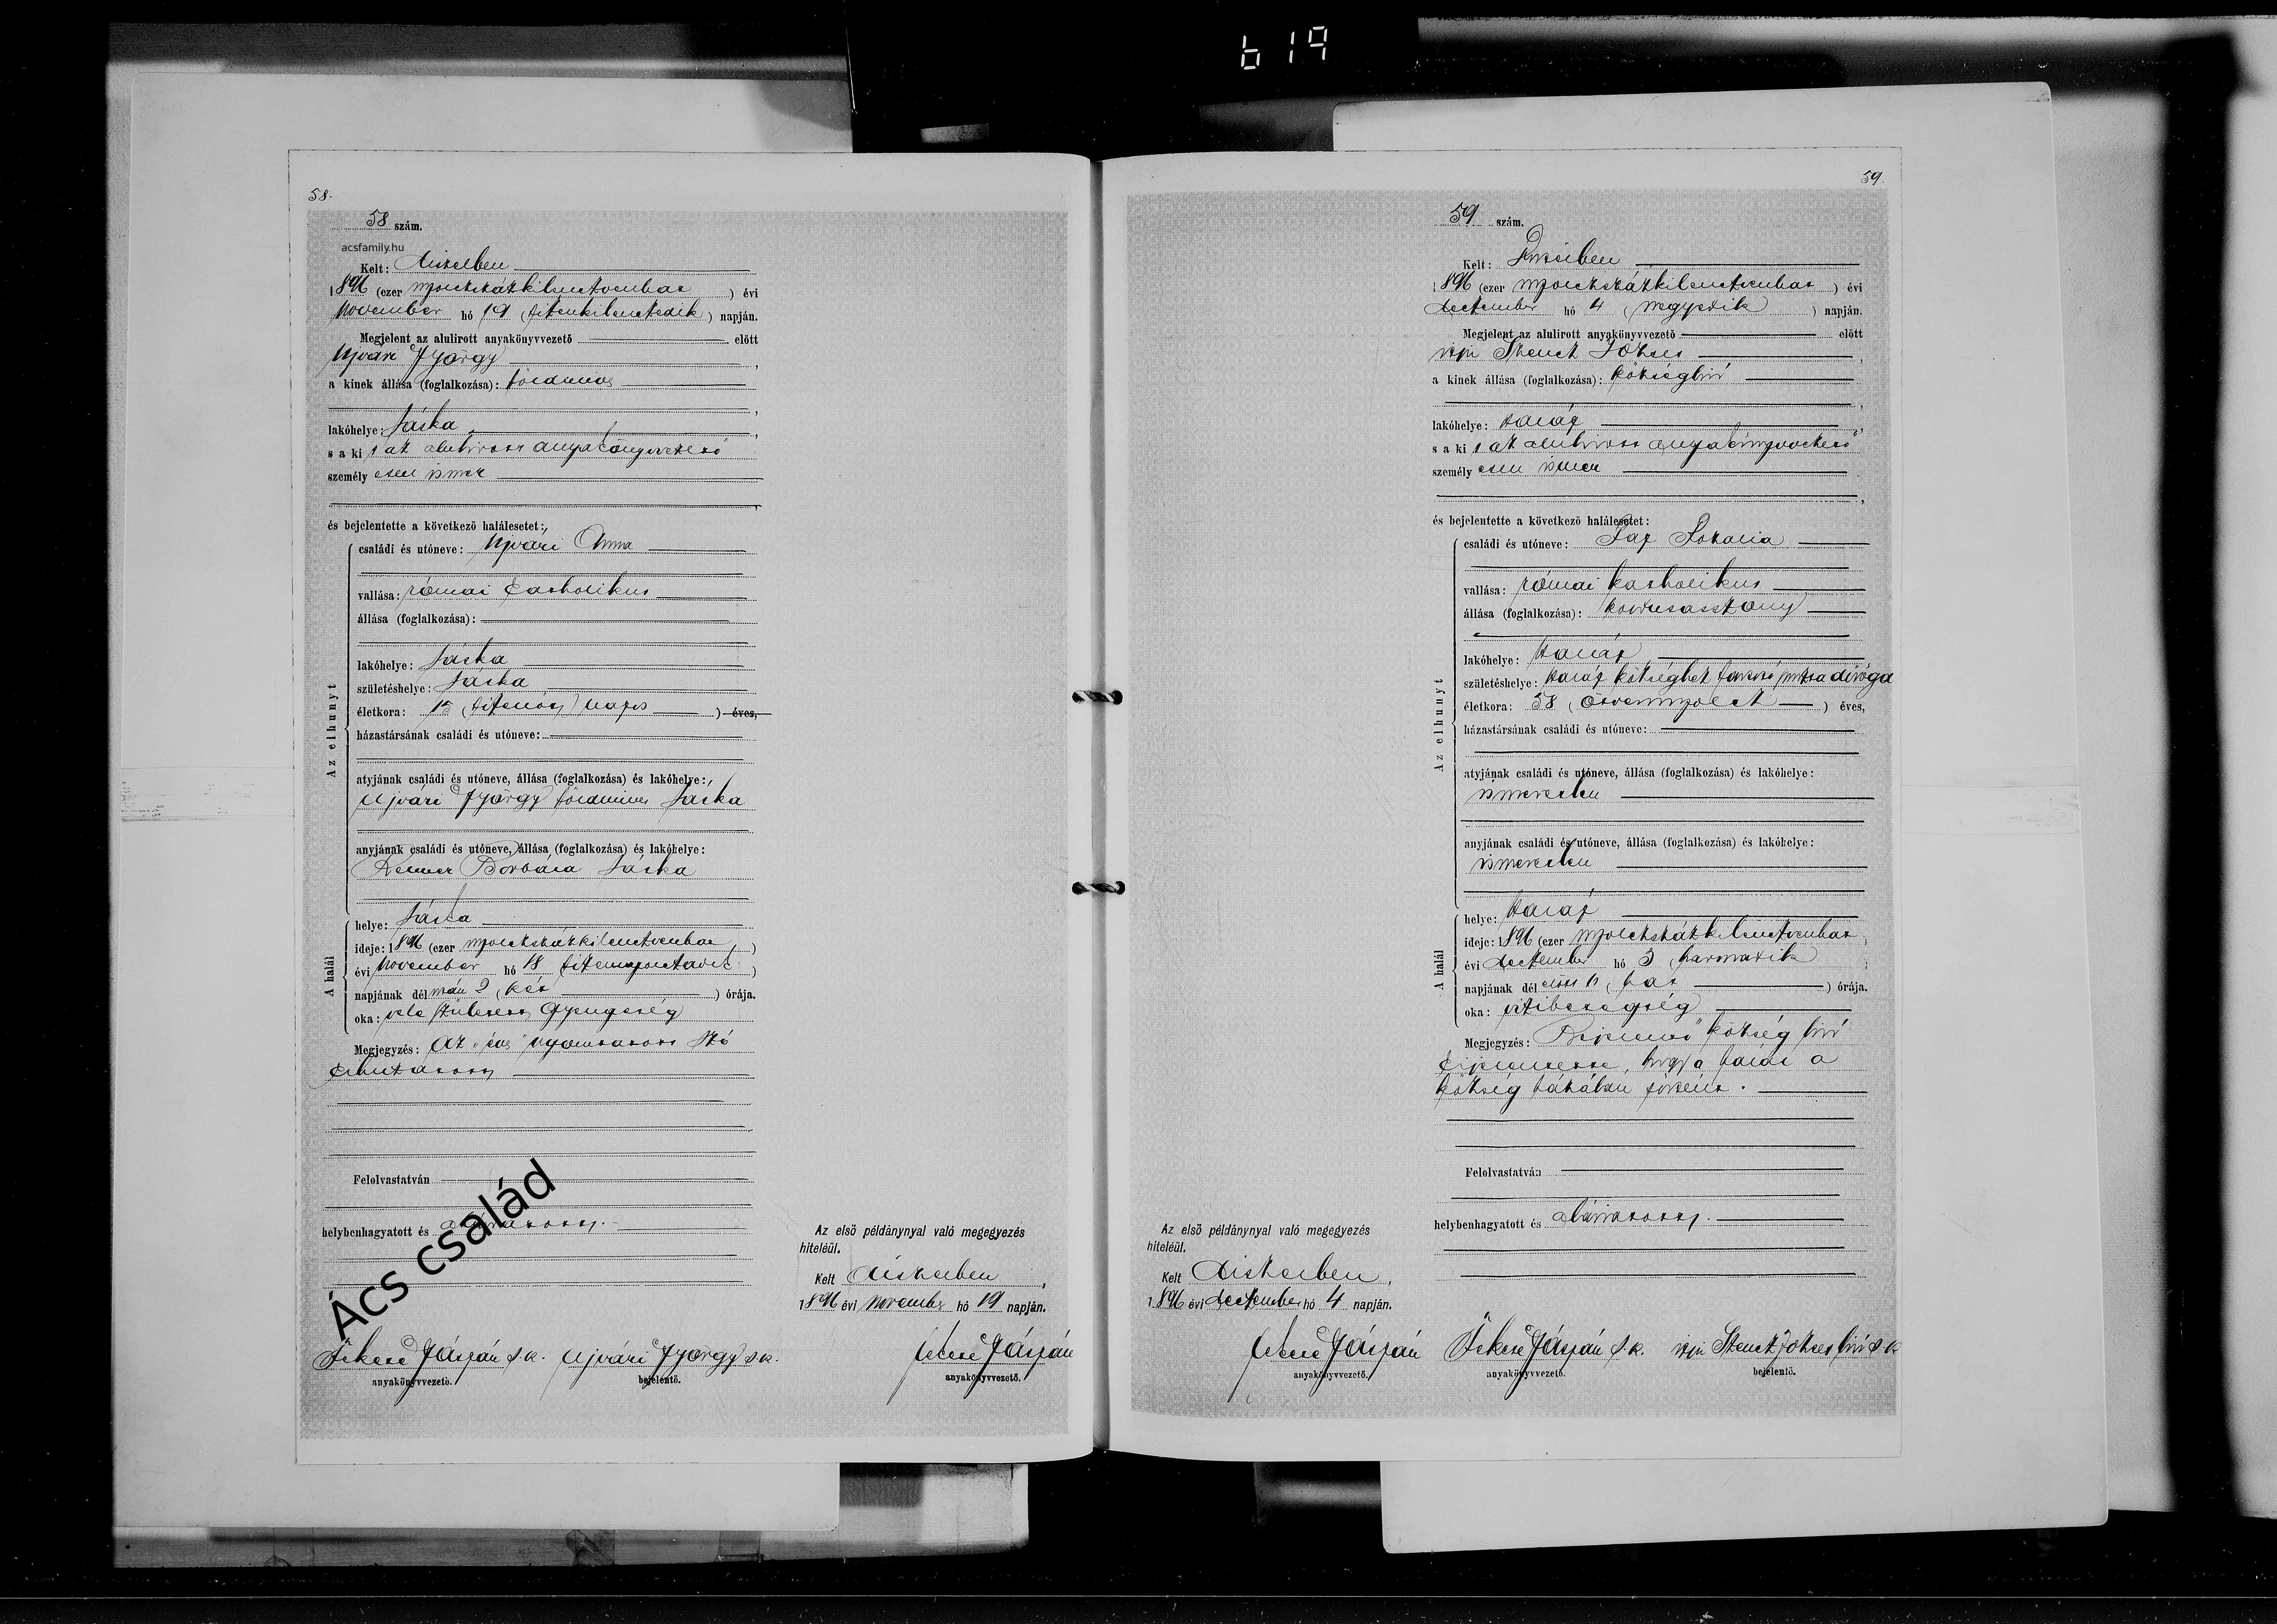 619
58.
58 szám.
acsfamily.hu
Kelt:
1896 (ezer nyolczszázkilenczvenhat) évi
november hó 19 (tizenkilenczedik) napján.
Megjelent az alulirott anyakönyvvezető előtt
Ujvári György,
a kinek állása (foglalkozása): földmives
,
lakóhelye: Jáska,
s a kit az alulirott anyakönyvvezető
személyesen ismer
,
és bejelentette a következő halálesetet:
Az elhunyt
családi és utóneve: Ujvári Anna
vallása: római katholikus
állása (foglalkozása):
lakóhelye: Jáska
születéshelye: Jáska
életkora: 15 (tizenöt) napos ) éves,
házastársának családi és utóneve:
atyjának családi és utóneve, állása (foglalkozása) és lakóhelye:
Ujvári György földmives Jáska
anyjának családi és utóneve, állása (foglalkozása) és lakóhelye:
Borbára Jáska
A halál
helye: Jáska
ideje: 1896 (ezer nyolczszázkilenczvenhat)
évi november hó 18 (tizennyolczadik)
napjának délután 2 (két) órája.
oka: vele született gyengeség
Megjegyzés: Az „éves" nyomtatott szó
kihuzatott
Felolvastatván
helybenhagyatott és aláiratott.
Ács család
Az első példánynyal való megegyezés
hiteléül.
Kelt
1896 évi november hó 19 napján.
Fekese Gáspár s.k. Ujvári György s.k.
anyakönyvvezető. bejelentő.
Fekese Gáspár
anyakönyvvezető.
59.
59 szám.
Kelt:
1896 (ezer nyolczszázkilenczvenhat) évi
deczember hó 4 (negyedik) napján.
Megjelent az alulirott anyakönyvvezető előtt
ifju József,
a kinek állása (foglalkozása): községbiró
,
lakóhelye: Haláp,
s a kit az alulirott anyakönyvvezető
személyesen ismer
,
és bejelentette a következő halálesetet:
Az elhunyt
családi és utóneve: Pap Rozália
vallása: római katholikus
állása (foglalkozása): koldusasszony
lakóhelye: Haláp
születéshelye: Haláp községhez tartozó puszta diróga
életkora: 58 (ötvennyolcz) éves,
házastársának családi és utóneve:
atyjának családi és utóneve, állása (foglalkozása) és lakóhelye:
ismeretlen
anyjának családi és utóneve, állása (foglalkozása) és lakóhelye:
ismeretlen
A halál
helye: Haláp
ideje: 1896 (ezer nyolczszázkilenczvenhat)
évi deczember hó 3 (harmadik)
napjának délelőtt 6 (hat) órája.
oka: vizibetegség
Megjegyzés: Bejelentő község biró
kijelentette, hogy a halál a
község házában történt.
Felolvastatván
helybenhagyatott és aláiratott.
Az első példánynyal való megegyezés
hiteléül.
Kelt
1896 évi deczember hó 4 napján.
Fekese Gáspár
anyakönyvvezető.
Fekese Gáspár s.k. ifju József biró s.k.
anyakönyvvezető. bejelentő.